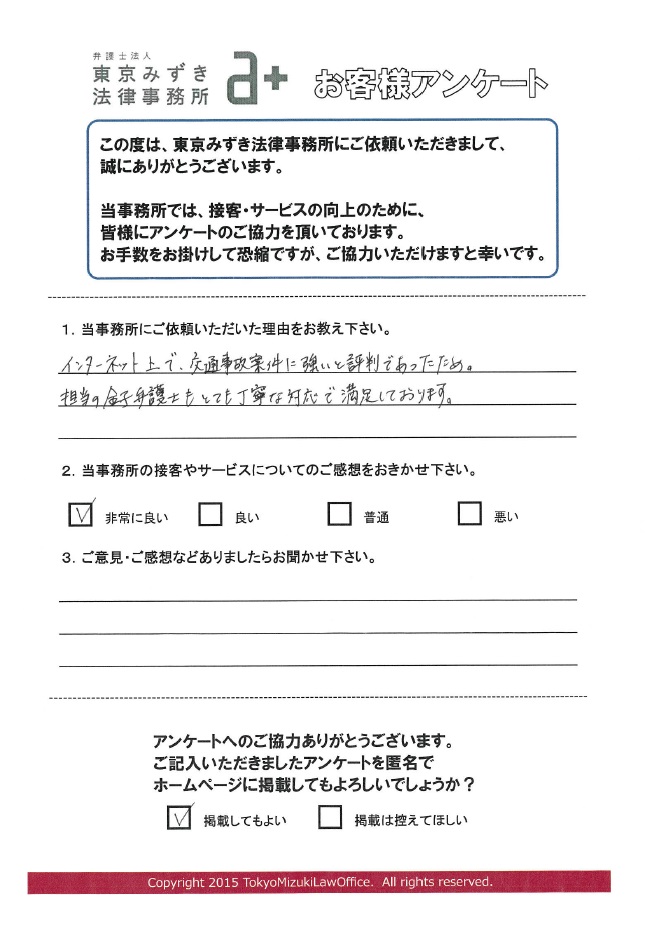 弁護士法人
東京みずき
法律事務所
a+
お客様アンケート
この度は、東京みずき法律事務所にご依頼いただきまして、
誠にありがとうございます。
当事務所では、接客・サービスの向上のために、
皆様にアンケートのご協力を頂いております。
お手数をお掛けして恐縮ですが、ご協力いただけますと幸いです。
1. 当事務所にご依頼いただいた理由をお教え下さい。
インターネット上で、交通事故案件に強いと評判であったため。
担当の金子弁護士もとても丁寧な対応で満足しております。
2. 当事務所の接客やサービスについてのご感想をおきかせ下さい。
非常に良い 良い 普通 悪い
3. ご意見・ご感想などありましたらお聞かせ下さい。
アンケートへのご協力ありがとうございます。
ご記入いただきましたアンケートを匿名で
ホームページに掲載してもよろしいでしょうか？
掲載してもよい 掲載は控えてほしい
Copyright 2015 TokyoMizukiLawOffice. All rights reserved.